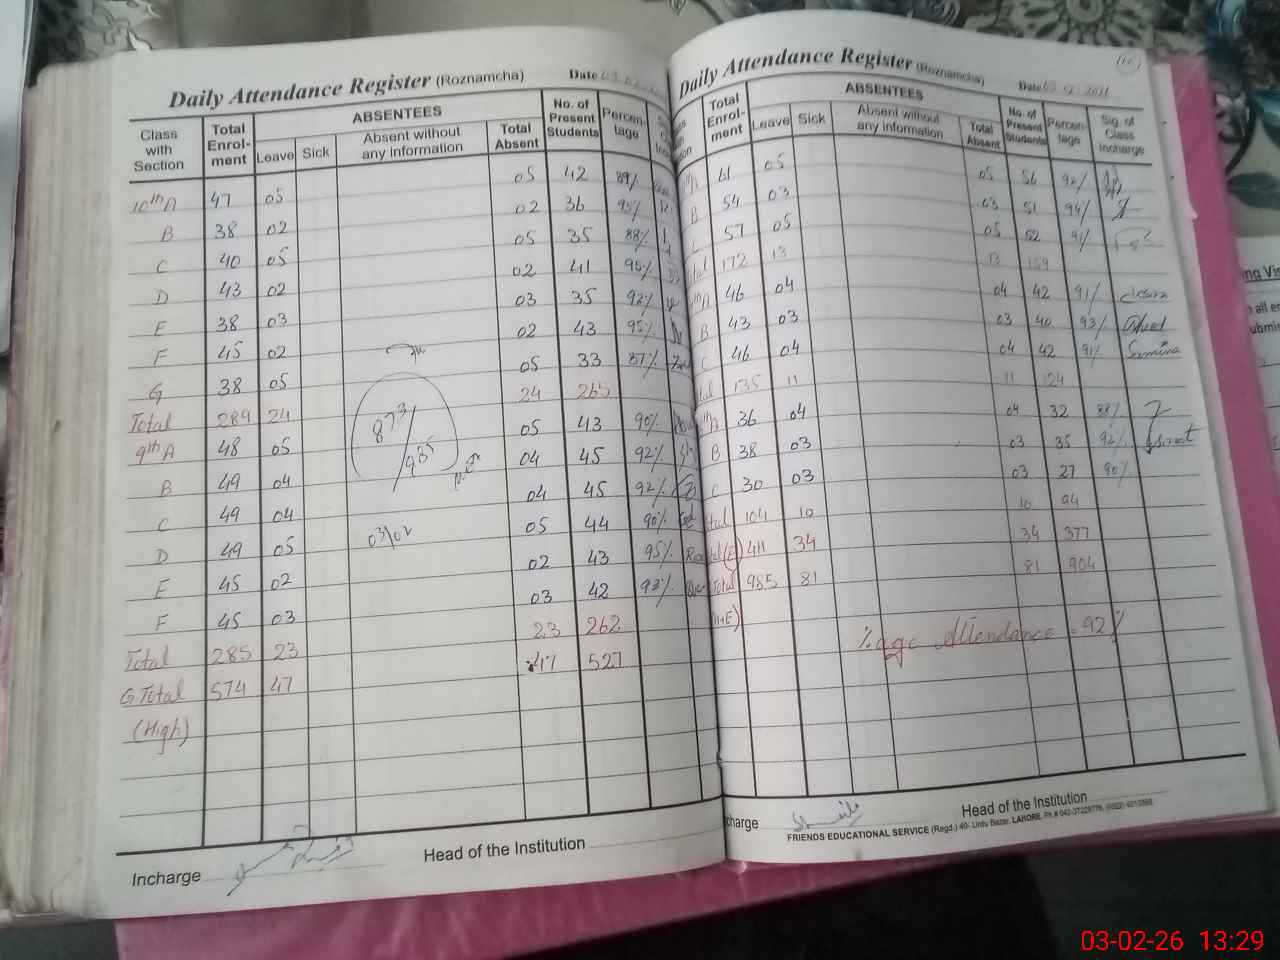 Daily Attendance Register (Roznamcha)
Date 03.02.
Class with Section
Total Enrol-ment
ABSENTEES
Leave
Sick
Absent without any information
Total Absent
No. of Present Students
Percen-tage
10th A 47 05 05 42 89%
B 38 02 02 36 95%
C 40 05 05 35 88%
D 43 02 02 41 95%
E 38 03 03 35 92%
F 45 02 02 43 95%
G 38 05 05 33 87%
Total 289 24 24 265
9th A 48 05 05 43 90%
B 49 04 04 45 92%
C 49 04 04 45 92%
D 49 05 05 44 90%
E 45 02 02 43 95%
F 45 03 03 42 93%
Total 285 23 23 262
G Total 574 47 47 527
(High)
873/985
03/02
Incharge
Head of the Institution
Daily Attendance Register (Roznamcha)
Date 03.02.2026
Total Enrol-ment
ABSENTEES
Leave
Sick
Absent without any information
Total Absent
No. of Present Students
Percen-tage
Sig. of Class Incharge
A 61 05 05 56 92%
B 54 03 03 51 94%
C 57 05 05 52 91%
172 13 13 159
A 46 04 04 42 91%
B 43 03 03 40 93%
C 46 04 04 42 91% Samina
135 11 11 124
A 36 04 04 32 88%
B 38 03 03 35 92%
C 30 03 03 27 90%
104 10 10 94
(E) 411 34 34 377
Total 985 81 81 904
(H+E)
%age Attendance = 92%
Head of the Institution
FRIENDS EDUCATIONAL SERVICE (Regd.) 40- Urdu Bazar, LAHORE.
03-02-26 13:29